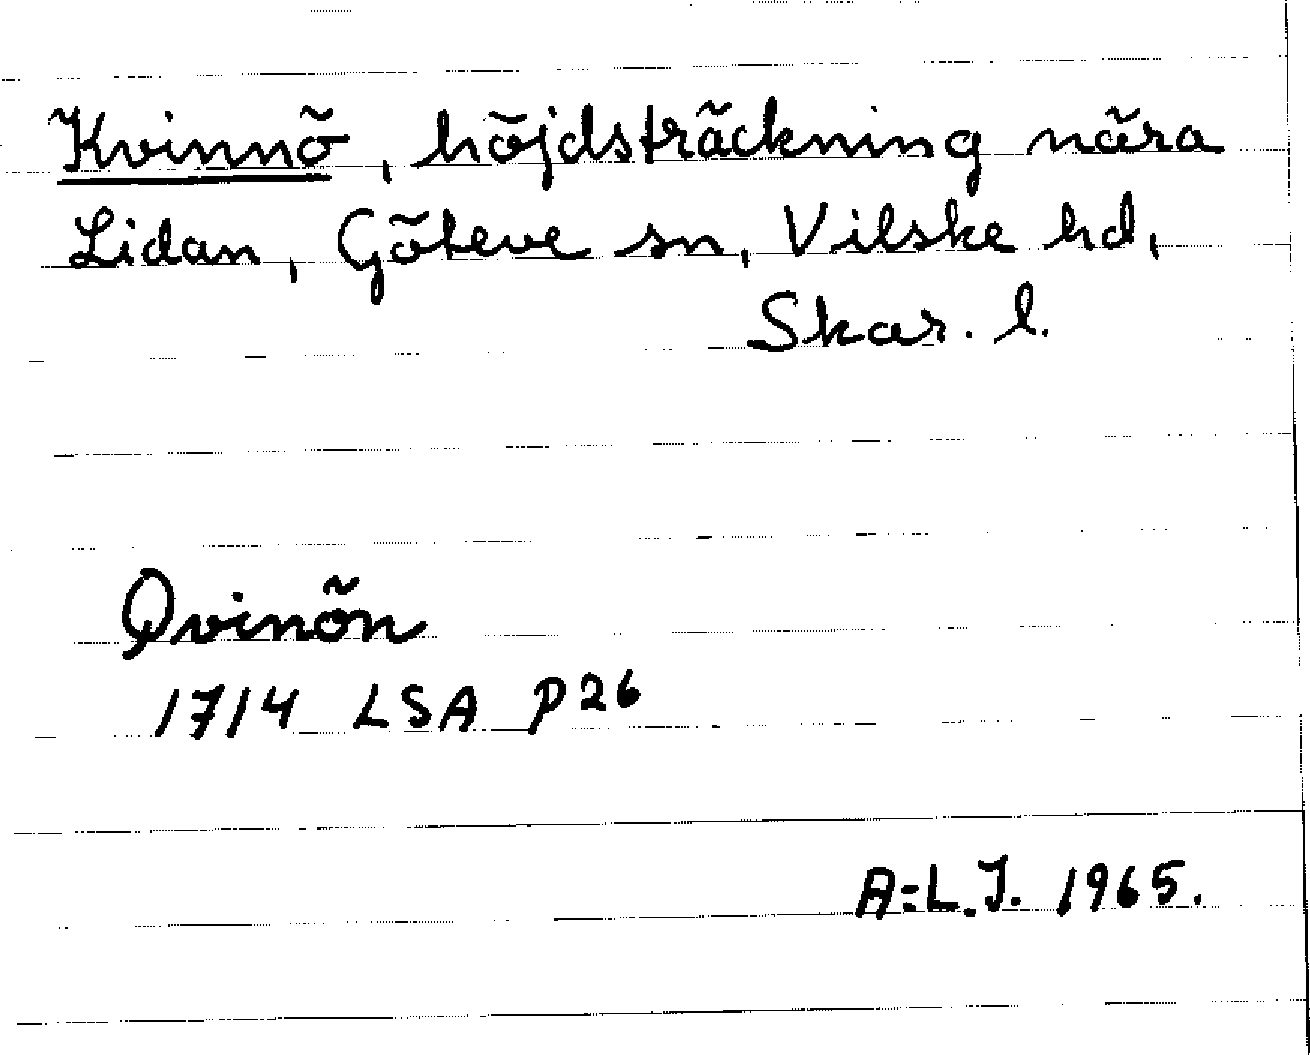 Kvinnö, höjdsträckning nära
Lidan, Göteve sn, Vilske hd,
Skar. l.
Qvinön
1714 LSA P26
A=L.J. 1965.